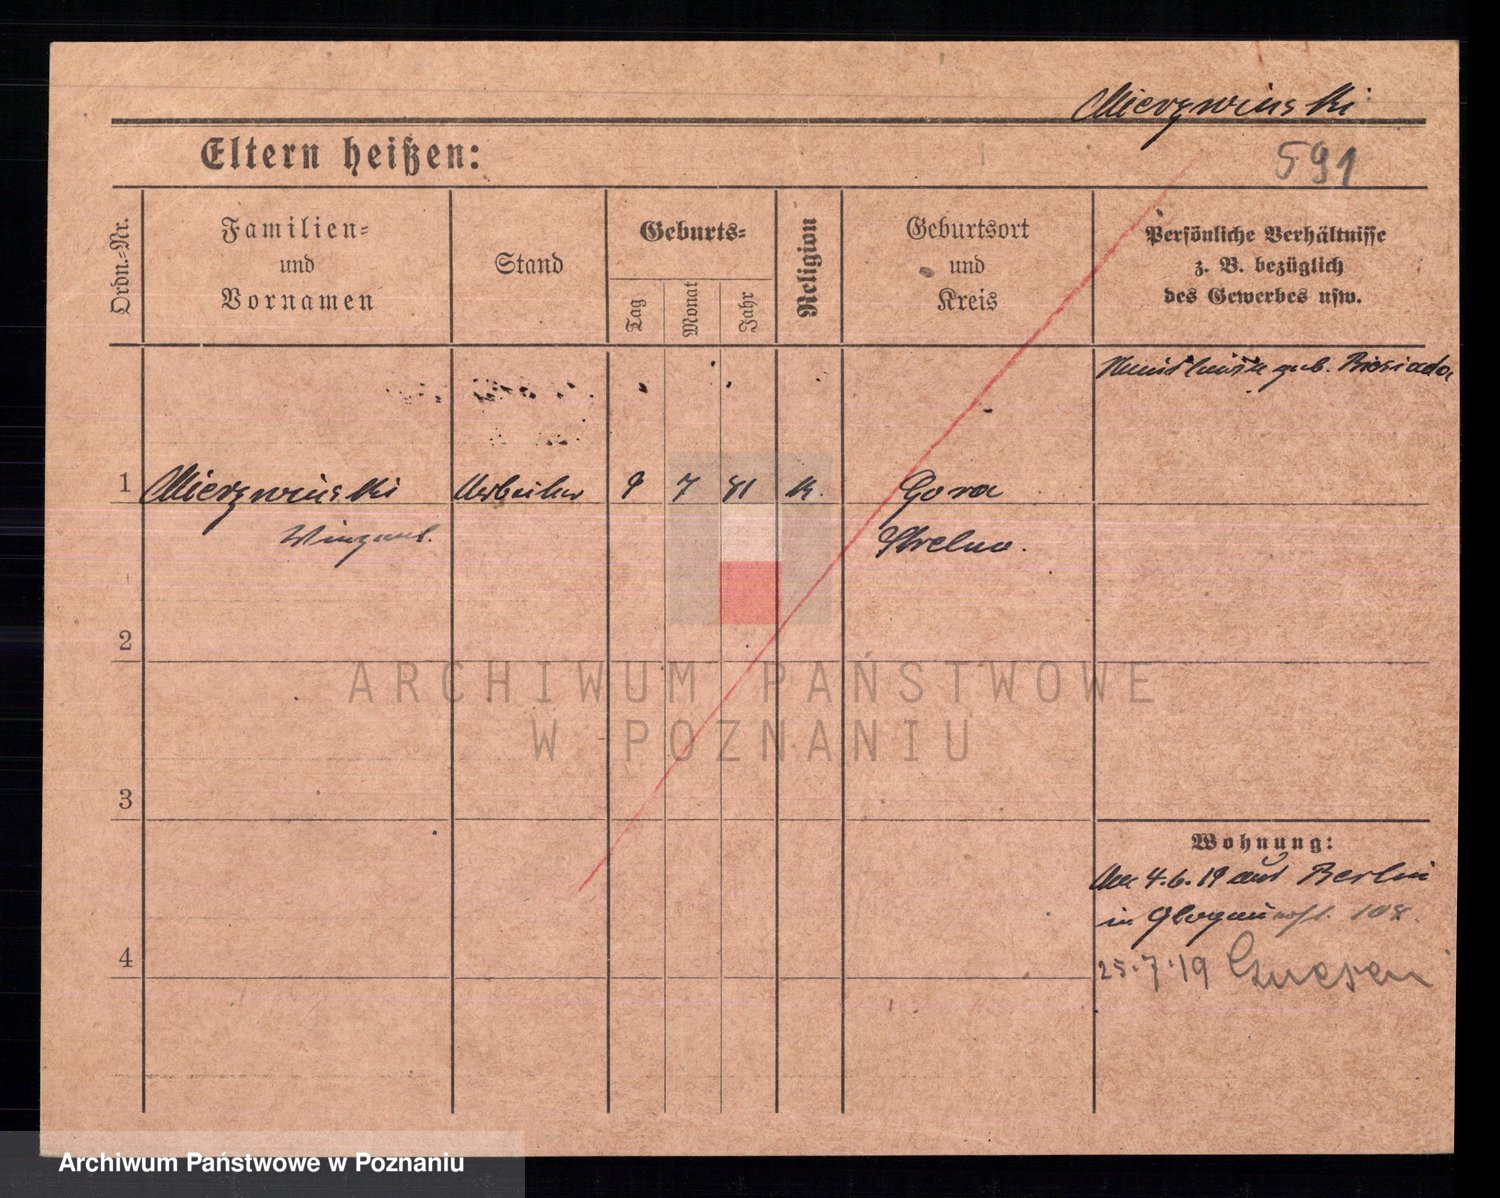 Mierzwinski
591
Eltern heißen:
Ordn.-Nr.
Familien-
und
Vornamen
Stand
Geburts-
Tag
Monat
Jahr
Religion
Geburtsort
und
Kreis
Persönliche Verhältnisse
z. B. bezüglich
des Gewerbes usw.
geb. Biesiada
1 Mierzwinski Arbeiter 9 7 81 k. Gora
Winzent. Strelno.
2
ARCHIWUM PAŃSTWOWE
W POZNANIU
3
Wohnung:
Am 4.6.19 aus Berlin
in Glogauerst. 108.
4
25.7.19 Gnesen
Archiwum Państwowe w Poznaniu